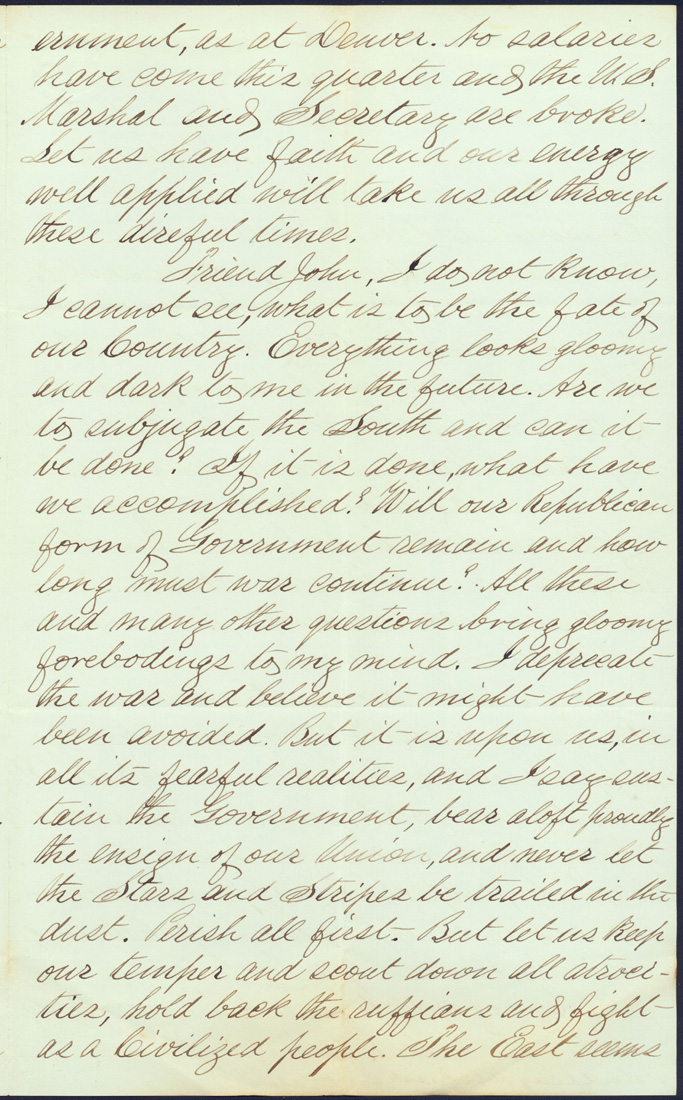 ernment, as at Denver. No salaries
have come this quarter and the U.S.
Marshal and Secretary are broke.
Let us have faith and our energy
well applied will take us all through
these direful times.
Friend John, I do not know,
I cannot see, what is to be the fate of
our Country. Everything looks gloomy
and dark to me in the future. Are we
to subjugate the South and can it
be done? If it is done, what have
we accomplished? Will our Republican
form of Government remain and how
long must war continue? All these
and many other questions bring gloomy
forebodings to my mind. I deprecate
the war and believe it might have
been avoided. But it is upon us, in
all its fearful realities, and I say sus-
tain the Government, bear aloft proudly
the ensign of our Union, and never let
the Stars and Stripes be trailed in the
dust. Perish all first. But let us keep
our temper and scout down all atroci-
ties, hold back the ruffians and fight
as a Civilized people. The East seems